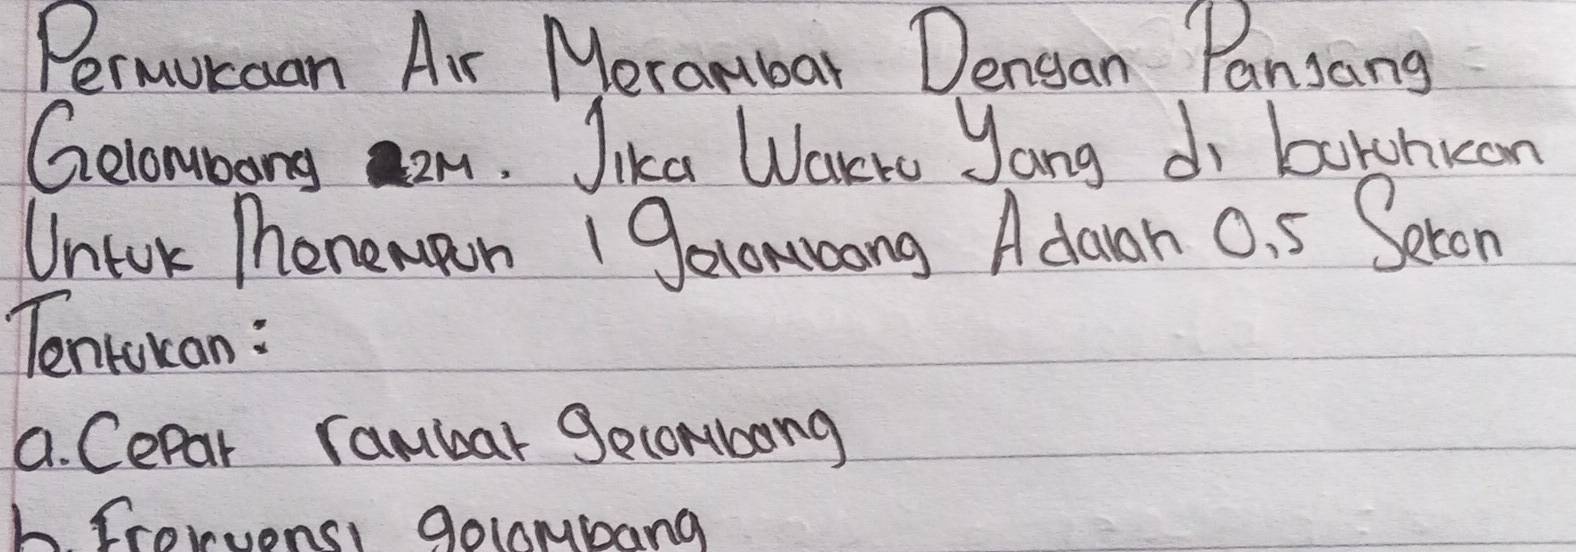 Permukaan Air Merambat Dengan Panjang
Gelombang 2M. Jika Waktu Yang di butuhkan
Untuk Menempuh 1 gelombang Adalah 0,5 Sekon
Tentukan:
a. Cepat rambat gelombang
b. Frekuensi gelombang